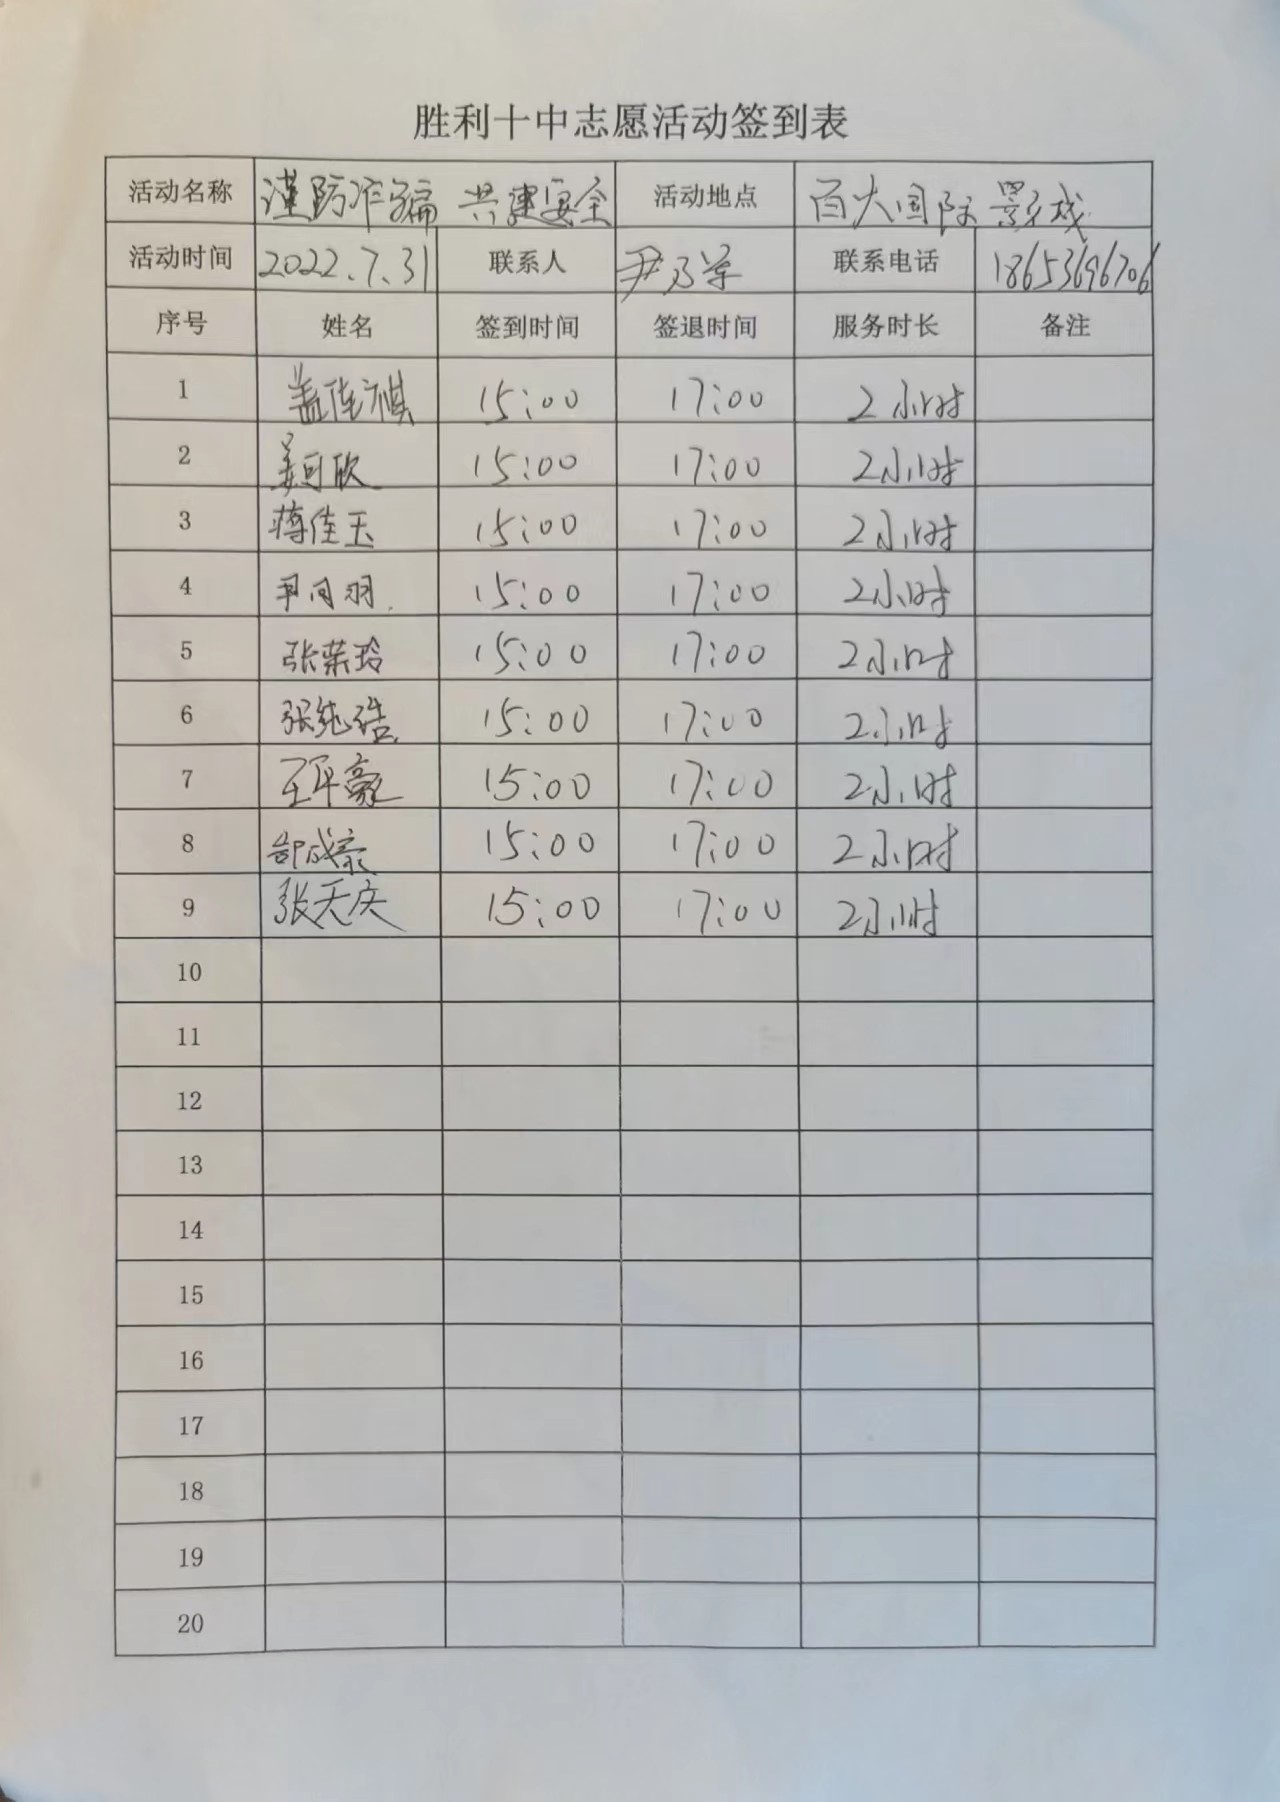 胜利十中志愿活动签到表
活动名称 谨防诈骗 共建安全 活动地点 百大国际影城
活动时间 2022.7.31 联系人 尹乃军 联系电话 18653696706
序号 姓名 签到时间 签退时间 服务时长 备注
1 盖佳祺 15:00 17:00 2小时
2 姜可欣 15:00 17:00 2小时
3 蒋佳玉 15:00 17:00 2小时
4 15:00 17:00 2小时
5 张荣玲 15:00 17:00 2小时
6 张纯浩 15:00 17:00 2小时
7 王平豪 15:00 17:00 2小时
8 15:00 17:00 2小时
9 张天庆 15:00 17:00 2小时
10
11
12
13
14
15
16
17
18
19
20